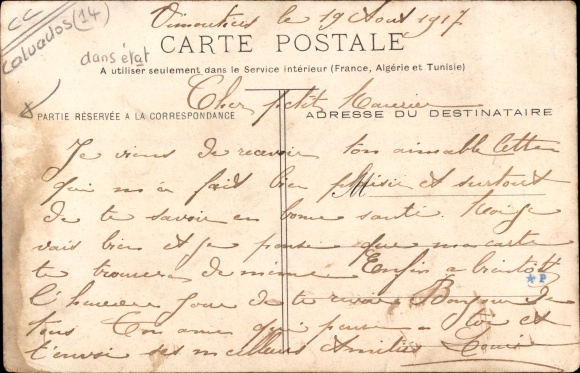 CC
Calvados (14)
dans état
Vimoutiers le 19 Aout 1917
CARTE POSTALE
A utiliser seulement dans le Service intérieur (France, Algérie et Tunisie)
Cher petit
PARTIE RÉSERVÉE A LA CORRESPONDANCE
ADRESSE DU DESTINATAIRE
Je viens de recevoir ton aimable lettre
qui m'a fait bien plaisir et surtout
de te savoir en bonne santé
vais bien et je pense que ma carte
te trouvera de même Enfin a bientôt
l'heureux jour de te revoir Bonjour de
tous Ton ami qui pense a toi et
t'envoi ses meilleurs Amitiés Louis
★ P